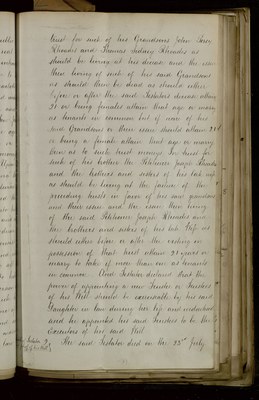 trust for such of his Grandsons John Rose
Rhoades and Thomas Rhoades as
should be living at his decease and the issue
then living of such of his said Grandsons
as should then be dead as should either
before or after the said Testators decease attain
21 or being females attain that age or marry
as tenants in common but if none of his
said Grandsons or their issue should attain 21
or being a female attain that age or marry
then as to such trust moneys In trust for
such of his brother the Petitioner Joseph Rhoades
and the brothers and sisters of his late wife
as should be living at the failure of the
preceding trusts in favor of his said grandsons
and their issue and the issue then living
of the said Petitioner Joseph Rhoades and
the brothers and sisters of his late Wife as
should either before or after the vesting in
possession of that trust attain 21 years or
marry to take if more than one as tenants
in common And Testator declared that the
power of appointing a new Trustee or Trustees
of his Will should be exercisable by his said
Daughter in law during her life and widowhood
and he appointed his said Trustees to be the
Executors of his said Will
Testator
The said Testator died on the 23rd July